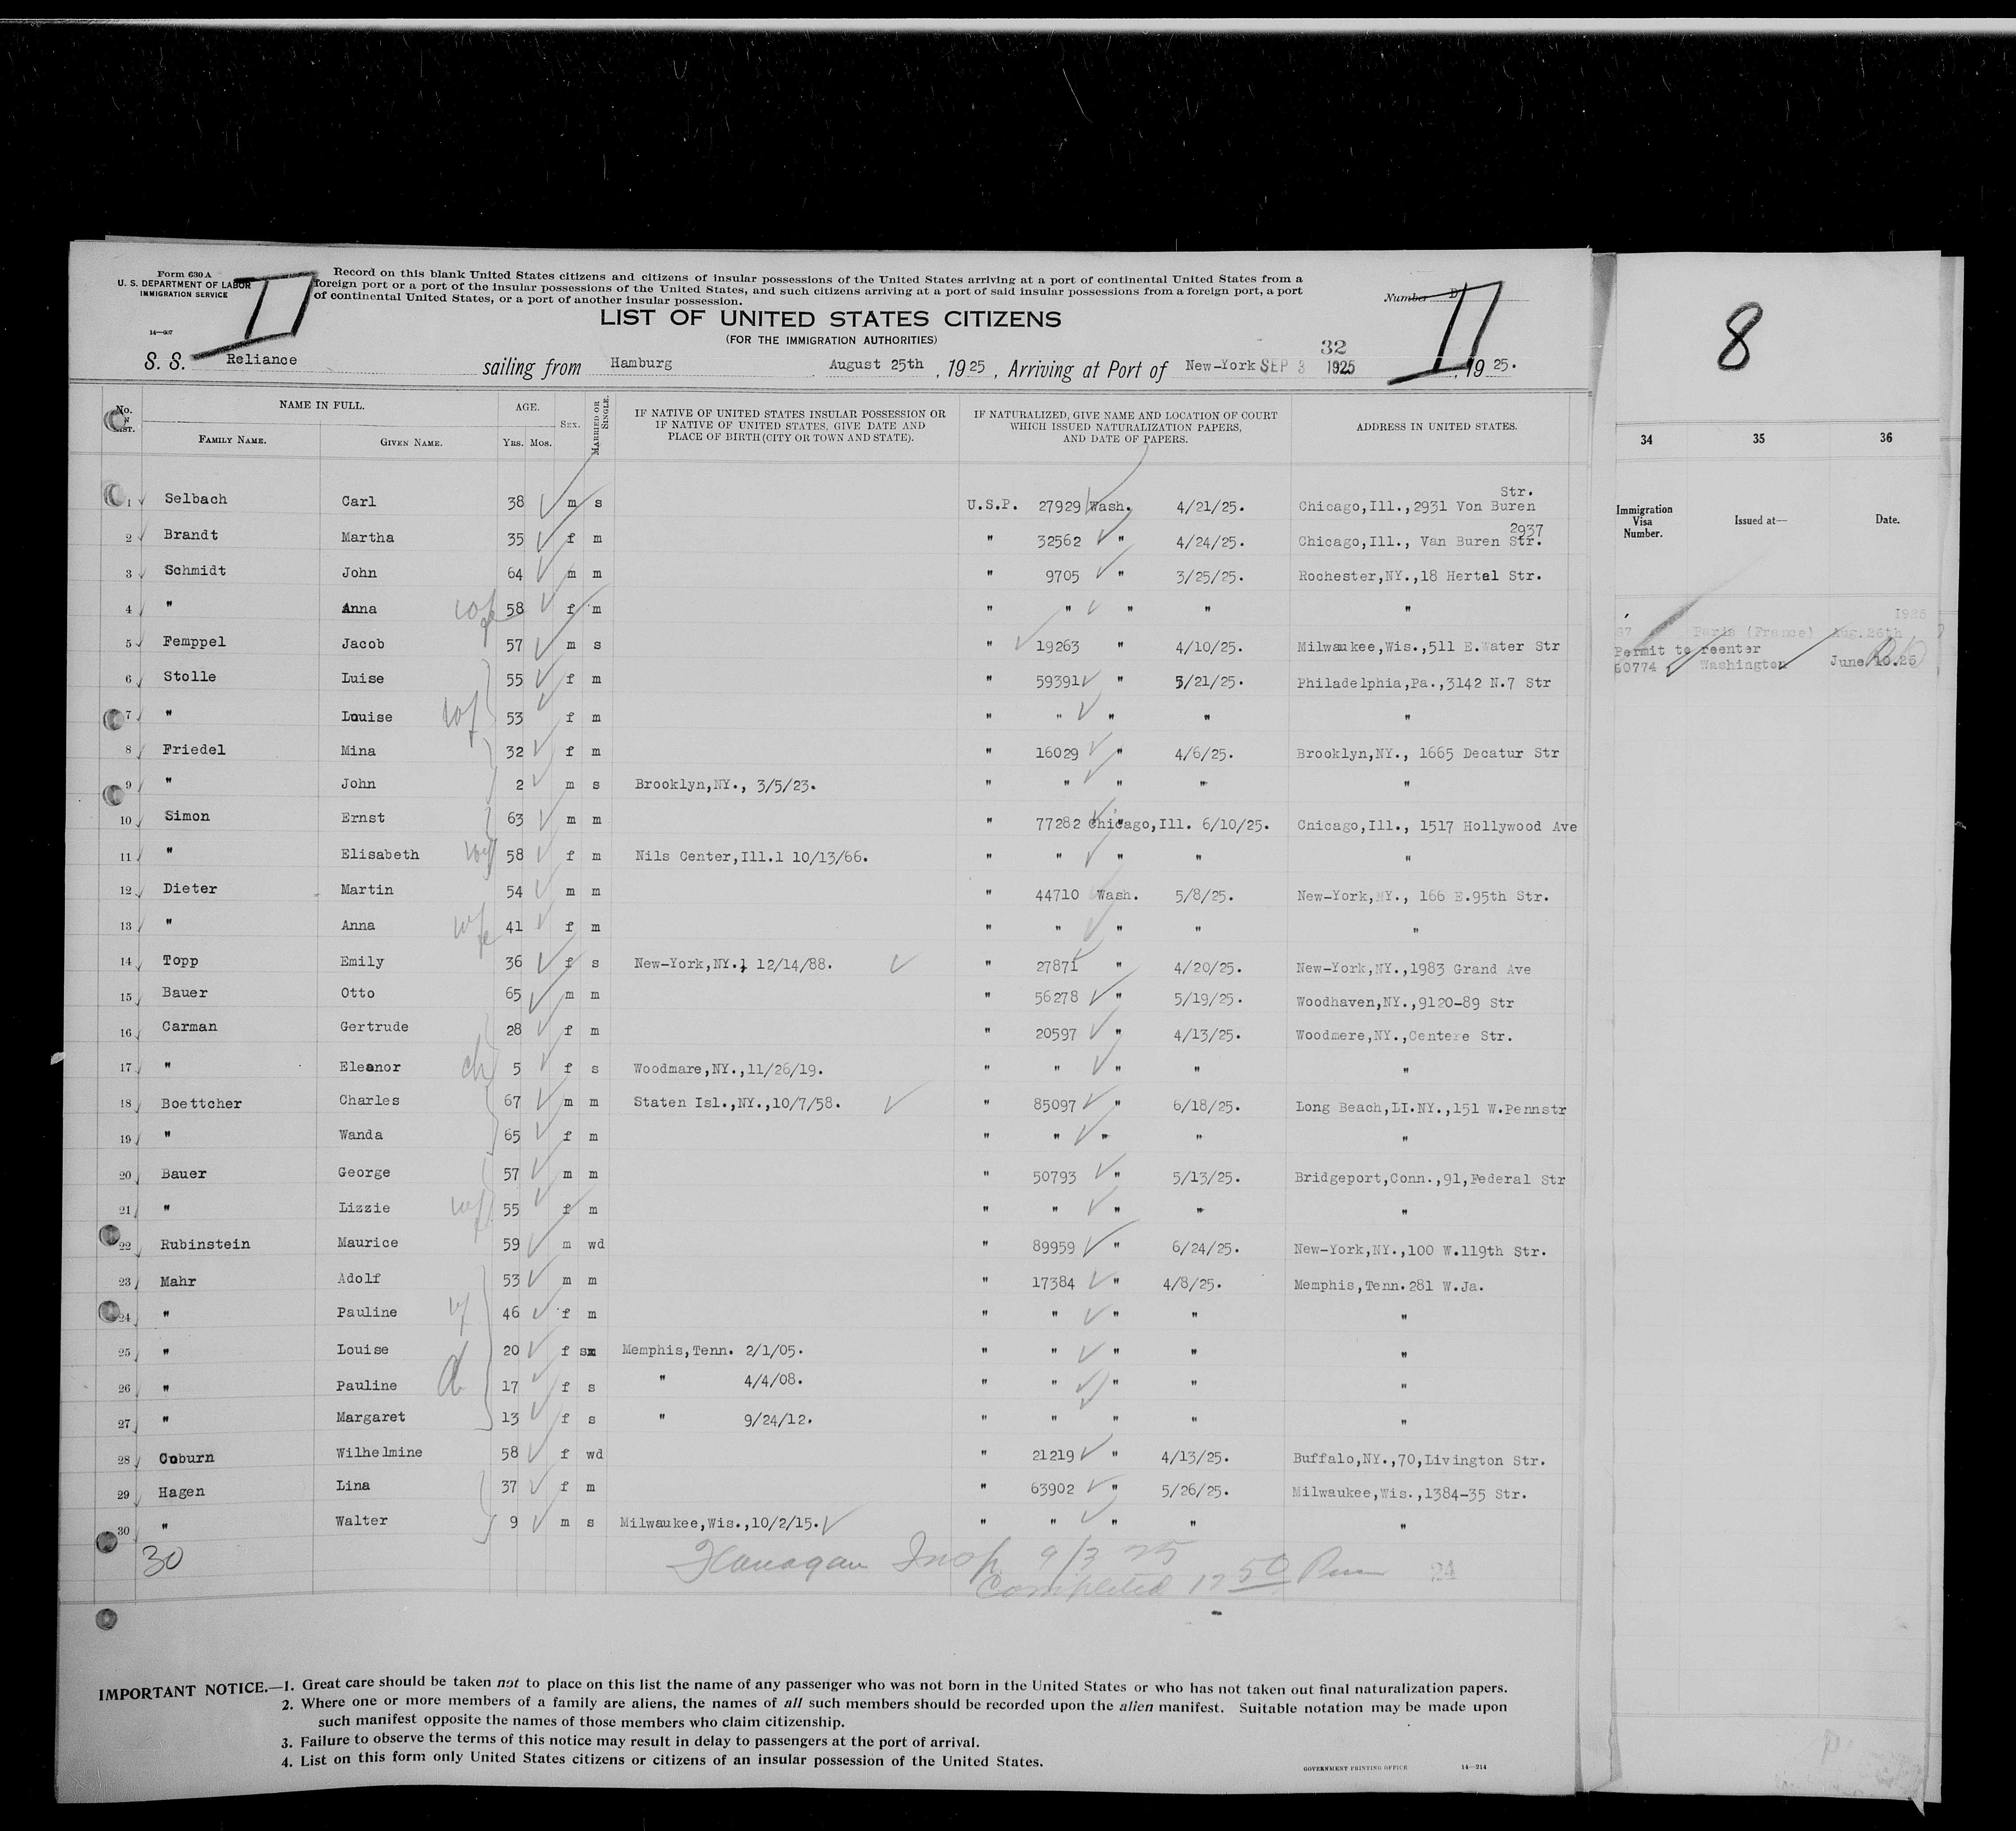 Form 630 A
U. S. DEPARTMENT OF LABOR
IMMIGRATION SERVICE
14—607
Record on this blank United States citizens and citizens of insular possessions of the United States arriving at a port of continental United States from a
foreign port or a port of the insular possessions of the United States, and such citizens arriving at a port of said insular possessions from a foreign port, a port
of continental United States, or a port of another insular possession.
Number
II
II
8
LIST OF UNITED STATES CITIZENS
(FOR THE IMMIGRATION AUTHORITIES)
32
S. S. Reliance sailing from Hamburg August 25th, 1925, Arriving at Port of New-York SEP 3 1925, 1925.
No. LIST. NAME IN FULL. AGE. SEX. MARRIED OR SINGLE. IF NATIVE OF UNITED STATES INSULAR POSSESSION OR IF NATIVE OF UNITED STATES, GIVE DATE AND PLACE OF BIRTH (CITY OR TOWN AND STATE). IF NATURALIZED, GIVE NAME AND LOCATION OF COURT WHICH ISSUED NATURALIZATION PAPERS, AND DATE OF PAPERS. ADDRESS IN UNITED STATES. 34 35 36
FAMILY NAME. GIVEN NAME. YRS. MOS.
Immigration Visa Number. Issued at— Date.
1 Selbach Carl 38 m s U.S.P. 27929 Wash. 4/21/25. Chicago,Ill.,2931 Von Buren Str.
2 Brandt Martha 35 f m " 32562 " 4/24/25. Chicago,Ill., Van Buren Str. 2937
3 Schmidt John 64 m m " 9705 " 3/25/25. Rochester,NY.,18 Hertel Str.
4 " Anna wife 58 f m " " " " "
1925
87 Paris (France) Aug.26th
5 Femppel Jacob 57 m s " 19263 " 4/10/25. Milwaukee,Wis.,511 E.Water Str
Permit to reenter
60774 Washington June 10.25
6 Stolle Luise 55 f m " 59391 " 5/21/25. Philadelphia,Pa.,3142 N.7 Str
7 " Louise wf 53 f m " " " " "
8 Friedel Mina 32 f m " 16029 " 4/6/25. Brooklyn,NY., 1665 Decatur Str
9 " John 2 m s Brooklyn,NY., 3/5/23. " " " " "
10 Simon Ernst 63 m m " 77282 Chicago,Ill. 6/10/25. Cnicago,Ill., 1517 Hollywood Ave
11 " Elisabeth wf 58 f m Nils Center,Ill.l 10/13/66. " " " " "
12 Dieter Martin 54 m m " 44710 Wash. 5/8/25. New-York,NY., 166 E.95th Str.
13 " Anna wife 41 f m " " " " "
14 Topp Emily 36 f s New-York,NY., 12/14/88. " 27871 " 4/20/25. New-York,NY.,1983 Grand Ave
15 Bauer Otto 65 m m " 56278 " 5/19/25. Woodhaven,NY.,9120-89 Str
16 Carman Gertrude 28 f m " 20597 " 4/13/25. Woodmere,NY.,Centere Str.
17 " Eleanor ch 5 f s Woodmare,NY.,11/26/19. " " " " "
18 Boettcher Charles 67 m m Staten Isl.,NY.,10/7/58. " 85097 " 6/18/25. Long Beach,LI.NY.,151 W.Pennstr
19 " Wanda 65 f m " " " " "
20 Bauer George 57 m m " 50793 " 5/13/25. Bridgeport,Conn.,91,Federal Str
21 " Lizzie wf 55 f m " " " " "
22 Rubinstein Maurice 59 m wd " 89959 " 6/24/25. New-York,NY.,100 W.119th Str.
23 Mahr Adolf 53 m m " 17384 " 4/8/25. Memphis,Tenn.281 W.Ja.
24 " Pauline wf 46 f m " " " " "
25 " Louise 20 f sm Memphis,Tenn. 2/1/05. " " " " "
26 " Pauline 17 f s " 4/4/08. " " " " "
27 " Margaret 13 f s " 9/24/12. " " " " "
28 Coburn Wilhelmine 58 f wd " 21219 " 4/13/25. Buffalo,NY.,70,Livington Str.
29 Hagen Lina 37 f m " 63902 " 5/26/25. Milwaukee,Wis.,1384-35 Str.
30 " Walter 9 m s Milwaukee,Wis.,10/2/15. " " " " "
30 Flanagan Insp 9/3 25
Completed 12 50 Pm 24
IMPORTANT NOTICE.—1. Great care should be taken not to place on this list the name of any passenger who was not born in the United States or who has not taken out final naturalization papers.
2. Where one or more members of a family are aliens, the names of all such members should be recorded upon the alien manifest. Suitable notation may be made upon
such manifest opposite the names of those members who claim citizenship.
3. Failure to observe the terms of this notice may result in delay to passengers at the port of arrival.
4. List on this form only United States citizens or citizens of an insular possession of the United States.
GOVERNMENT PRINTING OFFICE 14—214